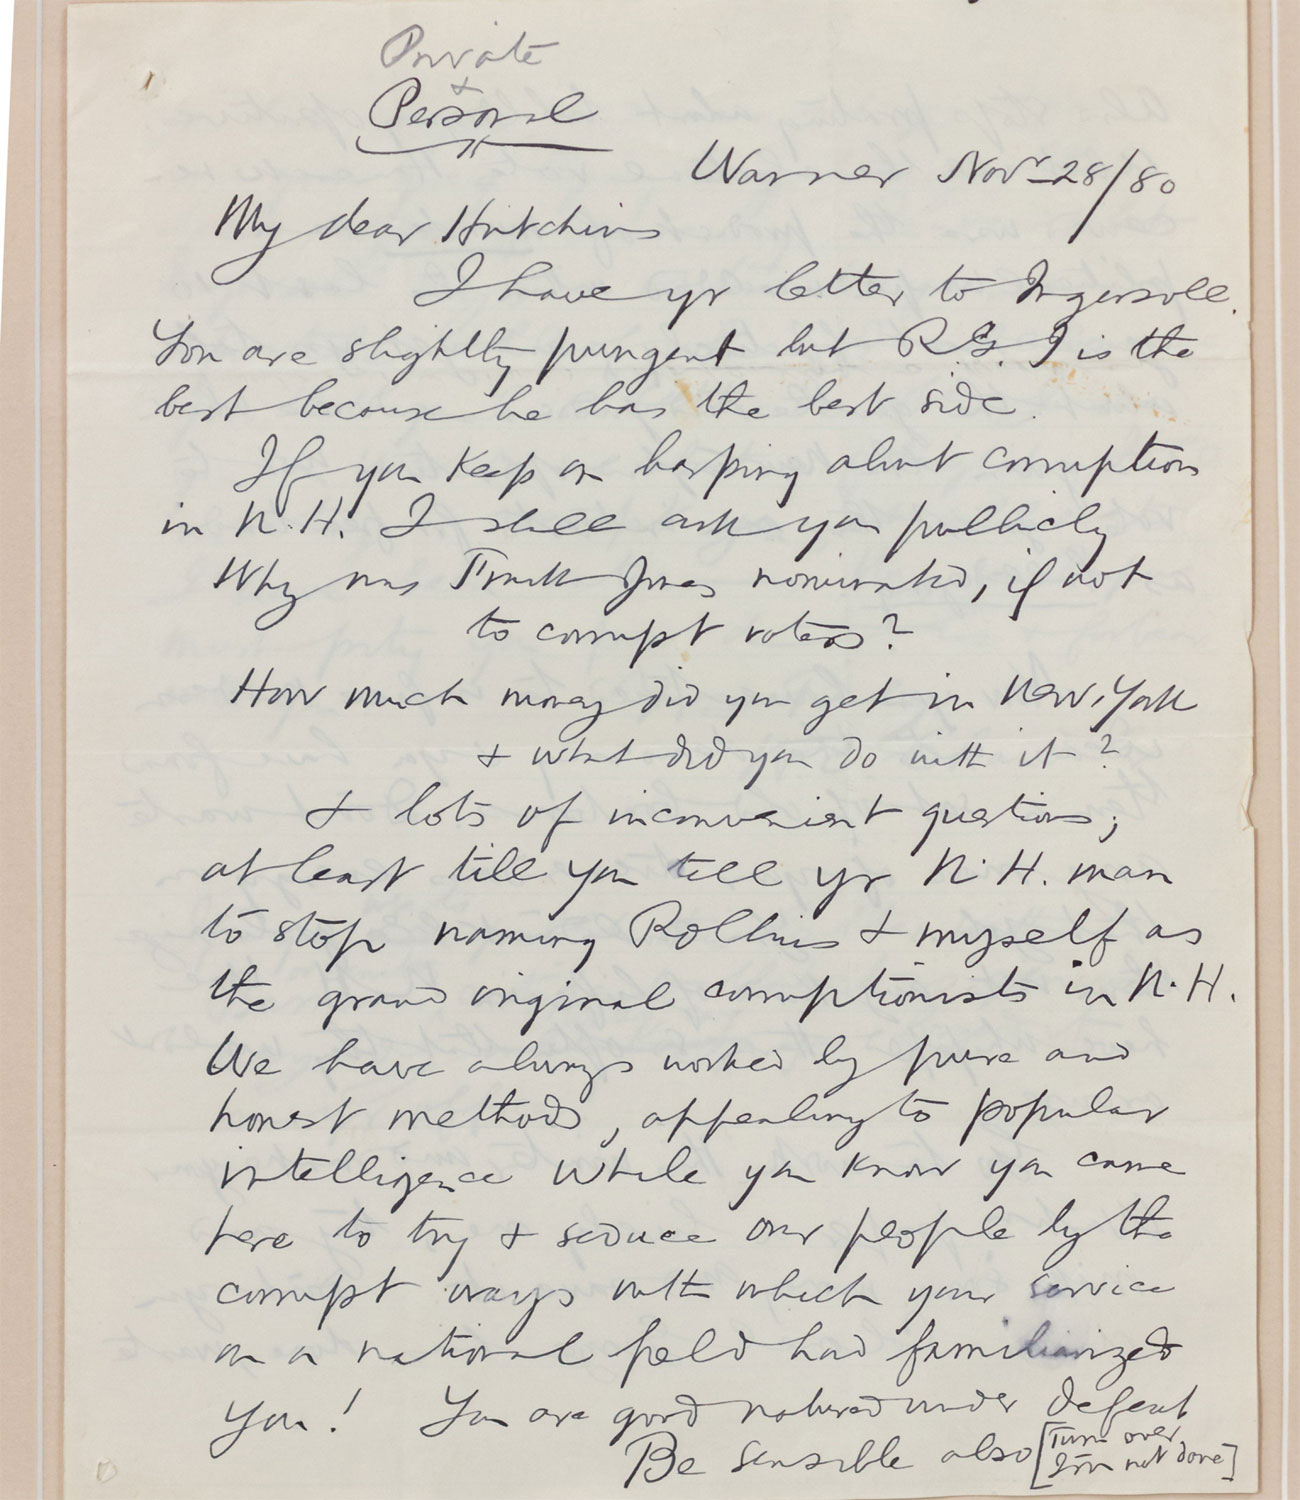 Private
+
Personal
Warner Novr 28/80
My dear Hutchins
I have yr letter to Ingersoll.
You are slightly pungent but R.G. I is the
best because he has the best side.
If you keep on harping about corruption
in N.H. I shall ask you publicly
Why was Frank Jones nominated, if not
to corrupt voters?
How much money did you get in New York
+ what did you do with it?
+ lots of inconvenient questions;
at least till you tell yr N.H. man
to stop naming Rollins + myself as
the grand original corruptionists in N.H.
We have always worked by pure and
honest methods, appealing to popular
intelligence while you know you came
here to try + seduce our people by the
corrupt ways with which your service
on a national field had familiarized
you! You are good natured under defeat
Be sensible also [Turn over
I'm not done]